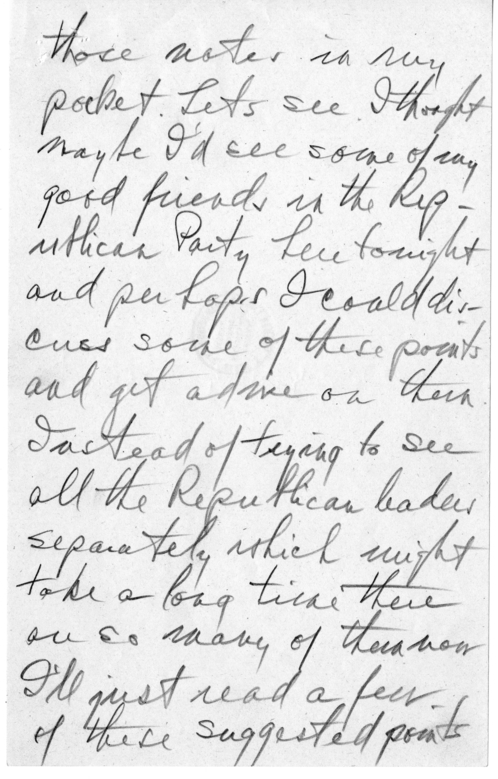 those notes in my
pocket. Lets see. I thought
maybe I'd see some of my
good friends in the Rep-
ublican Party here tonight
and perhaps I could dis-
cuss some of these points
and get advice on them.
Instead of trying to see
all the Republican leaders
separately which might
take a long time there
are so many of them now
I'll just read a few
of these suggested points